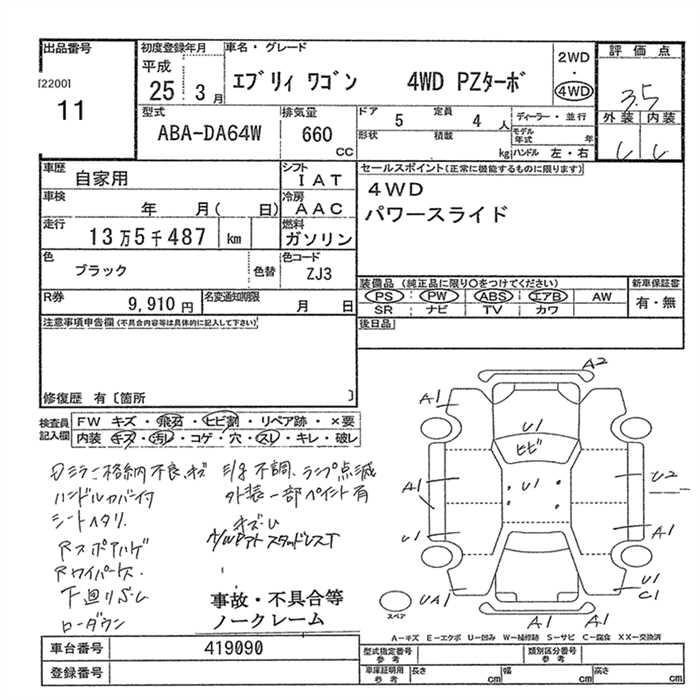 出品番号
[2200]
11
初度登録年月
平成
25 3月
車名・グレード
エブリィ ワゴン 4WD PZターボ
2WD
・
4WD
評価点
3.5
外装 内装
型式
ABA-DA64W
排気量
660
CC
ドア 5 定員 4 人
形状 積載 kg
ディーラー・並行
モデル年式 年
ハンドル 左・右
車歴
自家用
シフト
I A T
車検
年 月( 日)
冷房
A A C
走行
13万5千487 km
燃料
ガソリン
色
ブラック
色替
色コード
ZJ3
R券
9,910円
名変通知期限
月 日
セールスポイント(正常に機能するものに限ります)
4WD
パワースライド
装備品 (純正品に限り○をつけてください)
PS PW ABS エアB AW
SR ナビ TV カワ
新車保証書
有・無
後日品
注意事項申告欄(不具合内容等は具体的に記入して下さい)
修復歴 有〔箇所 〕
検査員
記入欄
FW キズ・飛石・ヒビ割・リペア跡・×要
内装 キズ・汚レ・コゲ・穴・スレ・キレ・破レ
ミラー格納不良、キズ
ハンドルカバー付
シートヘタリ
下廻りサビ
ローダウン
不調、ランプ点滅
外装一部ペイント有
キズ・U
スタッドレスT
事故・不具合等
ノークレーム
A2
A1
U1
ヒビ
A1
U1
U2
U1
A1
UA1
U1
C1
A1
A2
スペア
A1
A－キズ E－エクボ U－凹み W－補修跡 S－サビ C－腐食 XX－交換済
車台番号
419090
登録番号
型式指定番号
参考
類別区分番号
参考
車庫証明用
参考
長さ cm 幅 cm 高さ cm